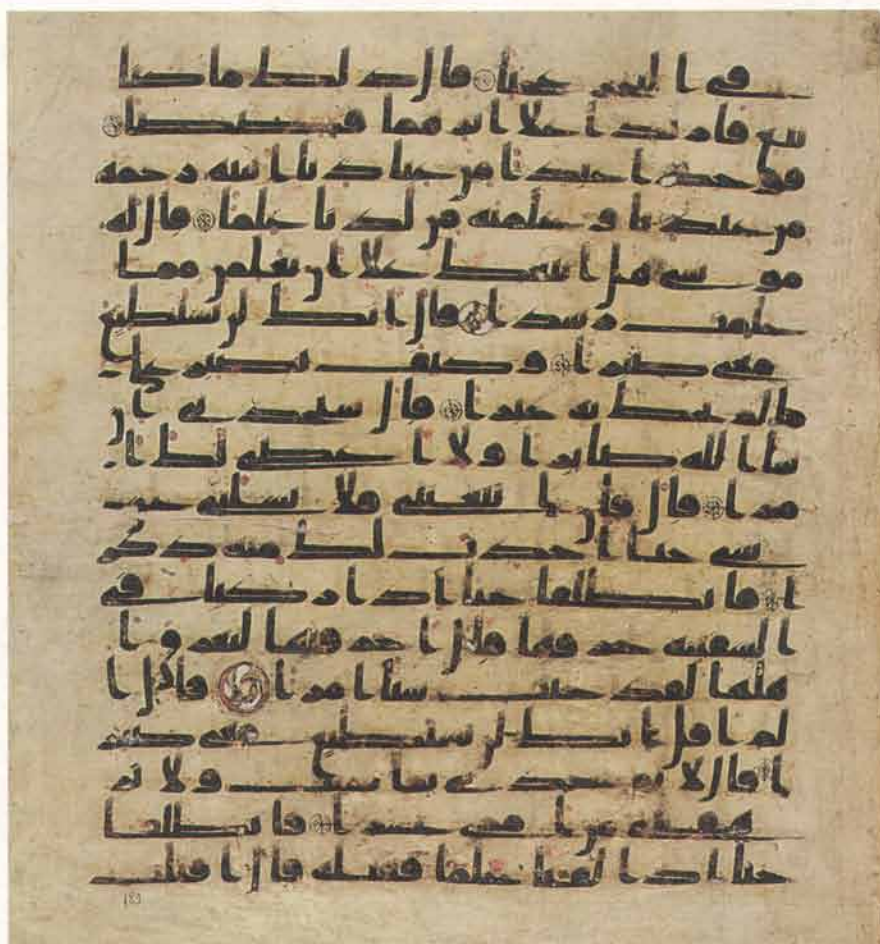 في البحر عجبا قال ذلك ما كنا
نبغ فارتدا على اثرهما قصصا
فوجدا عبدا من عبادنا اتينه رحمة
من عندنا وعلمنه من لدنا علما قال له
موسى هل اتبعك على ان تعلمن مما
علمت رشدا قال انك لن تستطيع
معي صبرا وكيف تصبر على
ما لم تحط به خبرا قال ستجدني ان
شا الله صابرا ولا اعصي لك ا
مرا قال فان اتبعتني فلا تسلني عن
شي حتى احدث لك منه ذكر
ا فانطلقا حتى اذا ركبا في
السفينة خرقها قال اخرقتها لتغرق ا
هلها لقد جيت شيا امرا قال ا
لم اقل انك لن تستطيع معي صبر
ا قال لا تواخذني بما نسيت ولا تر
هقني من امري عسرا فانطلقا
حتى اذا لقيا غلما فقتله قال اقتلت
183